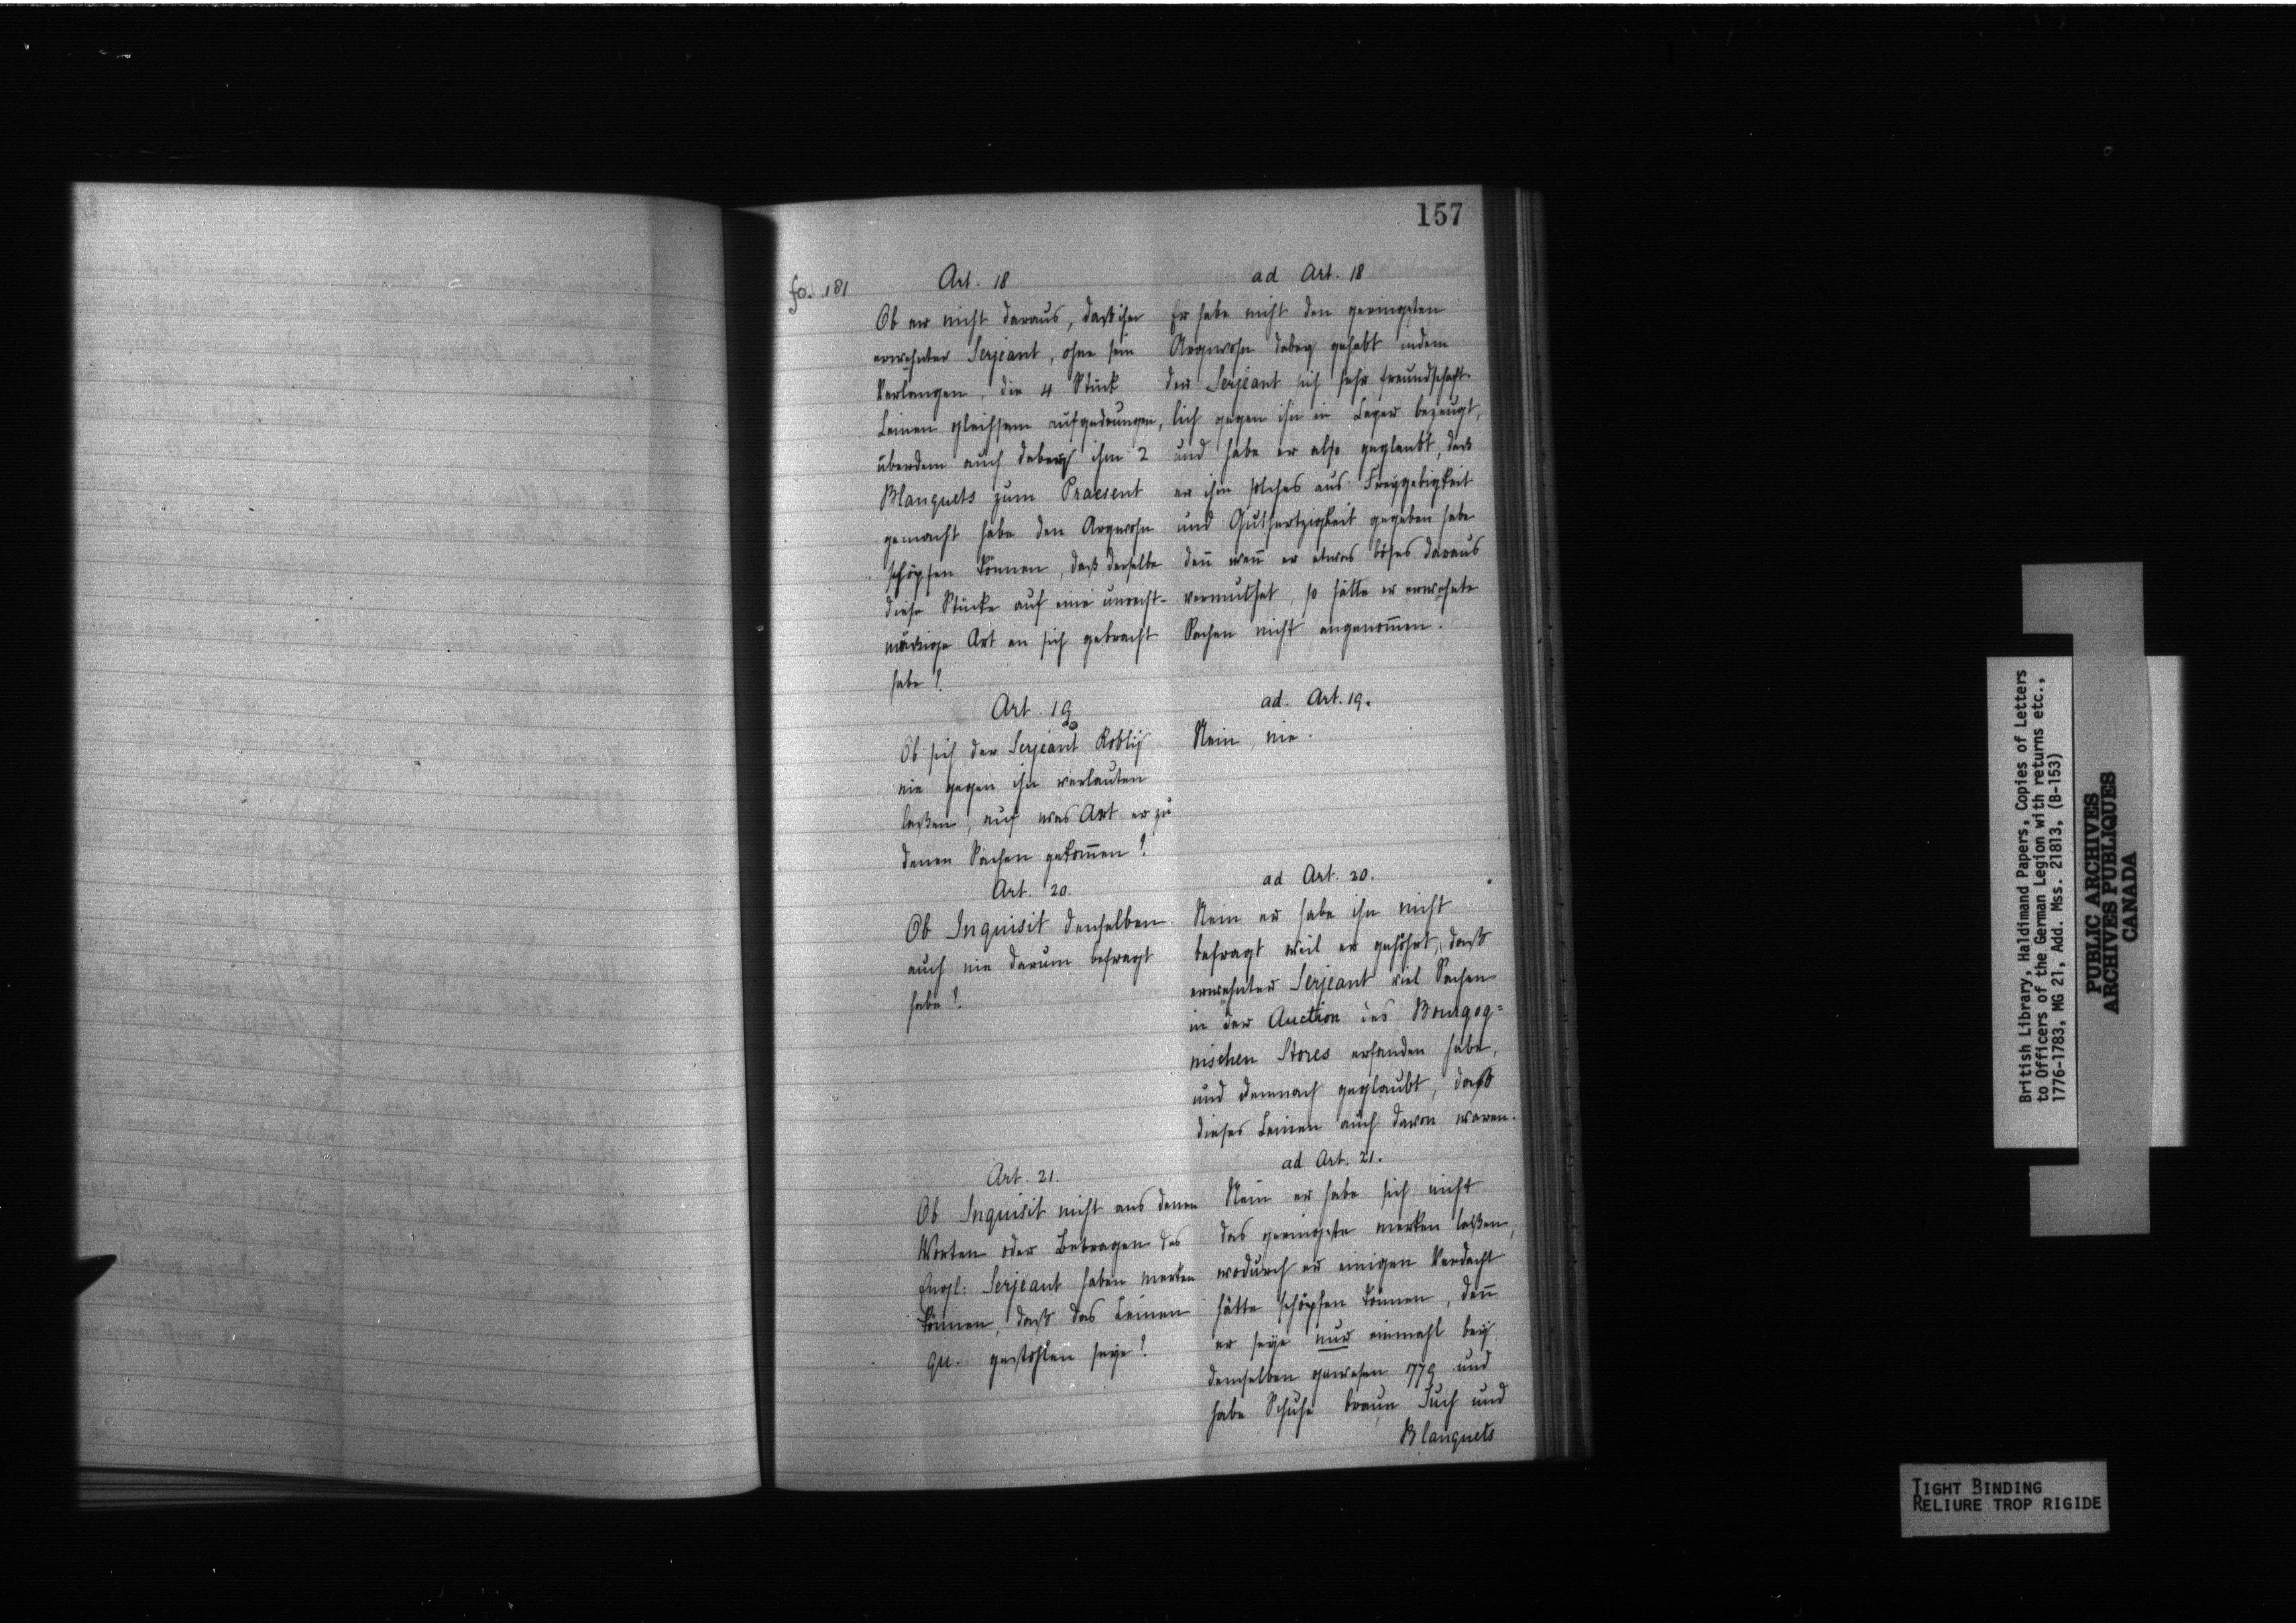 157
fo. 181
Art. 18
Ob er nicht daraus, daß ihm
erwehnter Serjeant, ohne sein
Verlangen, die 4 Stück
Leinen gleichsam aufgedrungen,
überdem auch dabey ihm 2
Blanquets zum Praesent
gemacht habe den Argwohn
schöpfen können, daß derselbe
diese Stücke auf eine unrecht-
mäßige Art an sich gebracht
habe?
ad Art. 18
Er habe nicht den geringsten
Argwohn dabey gehabt indem
der Serjeant sich sehr freundschaft-
lich gegen ihn im Lager bezeugt,
und habe er also geglaubt, daß
er ihm solches aus Freygebigkeit
und Guthertzigkeit gegeben habe
deñ weñ er etwas böses daraus
vermuthet, so hätte er erwehnte
Sachen nicht angenom̃en.
Art. 19
Ob sich der Serjeant
nie gegen ihn verlauten
laßen, auf was Art er zu
denen Sachen gekom̃en?
ad. Art. 19.
Nein, nie.
Art. 20.
Ob Inquisit denselben
auch nie darum befragt
habe?
ad Art. 20.
Nein er habe ihn nicht
befragt weil er gehöhrt, daß
erwehnter Serjeant viel Sachen
in der Auction des Bourgog=
nischen Stores erstanden habe,
und demnach geglaubt, daß
dieses Leinen auch davon waren.
Art. 21.
Ob Inquisit nicht aus denen
Worten oder Betragen des
Engl: Serjeant haben merken
können, daß das Leinen
qu. gestohlen seye?
ad Art. 21.
Nein er habe sich nicht
das geringste merken laßen,
wodurch er einigen Verdacht
hätte schöpfen können, deñ
er seye nur einmahl bey
demselben gewesen 1779 und
habe Schuhe braun Tuch und
Blanquets
British Library, Haldimand Papers, Copies of Letters
to Officers of the German Legion with returns etc.,
1776-1783, MG 21, Add. Mss. 21813, (B-153)
PUBLIC ARCHIVES
ARCHIVES PUBLIQUES
CANADA
TIGHT BINDING
RELIURE TROP RIGIDE